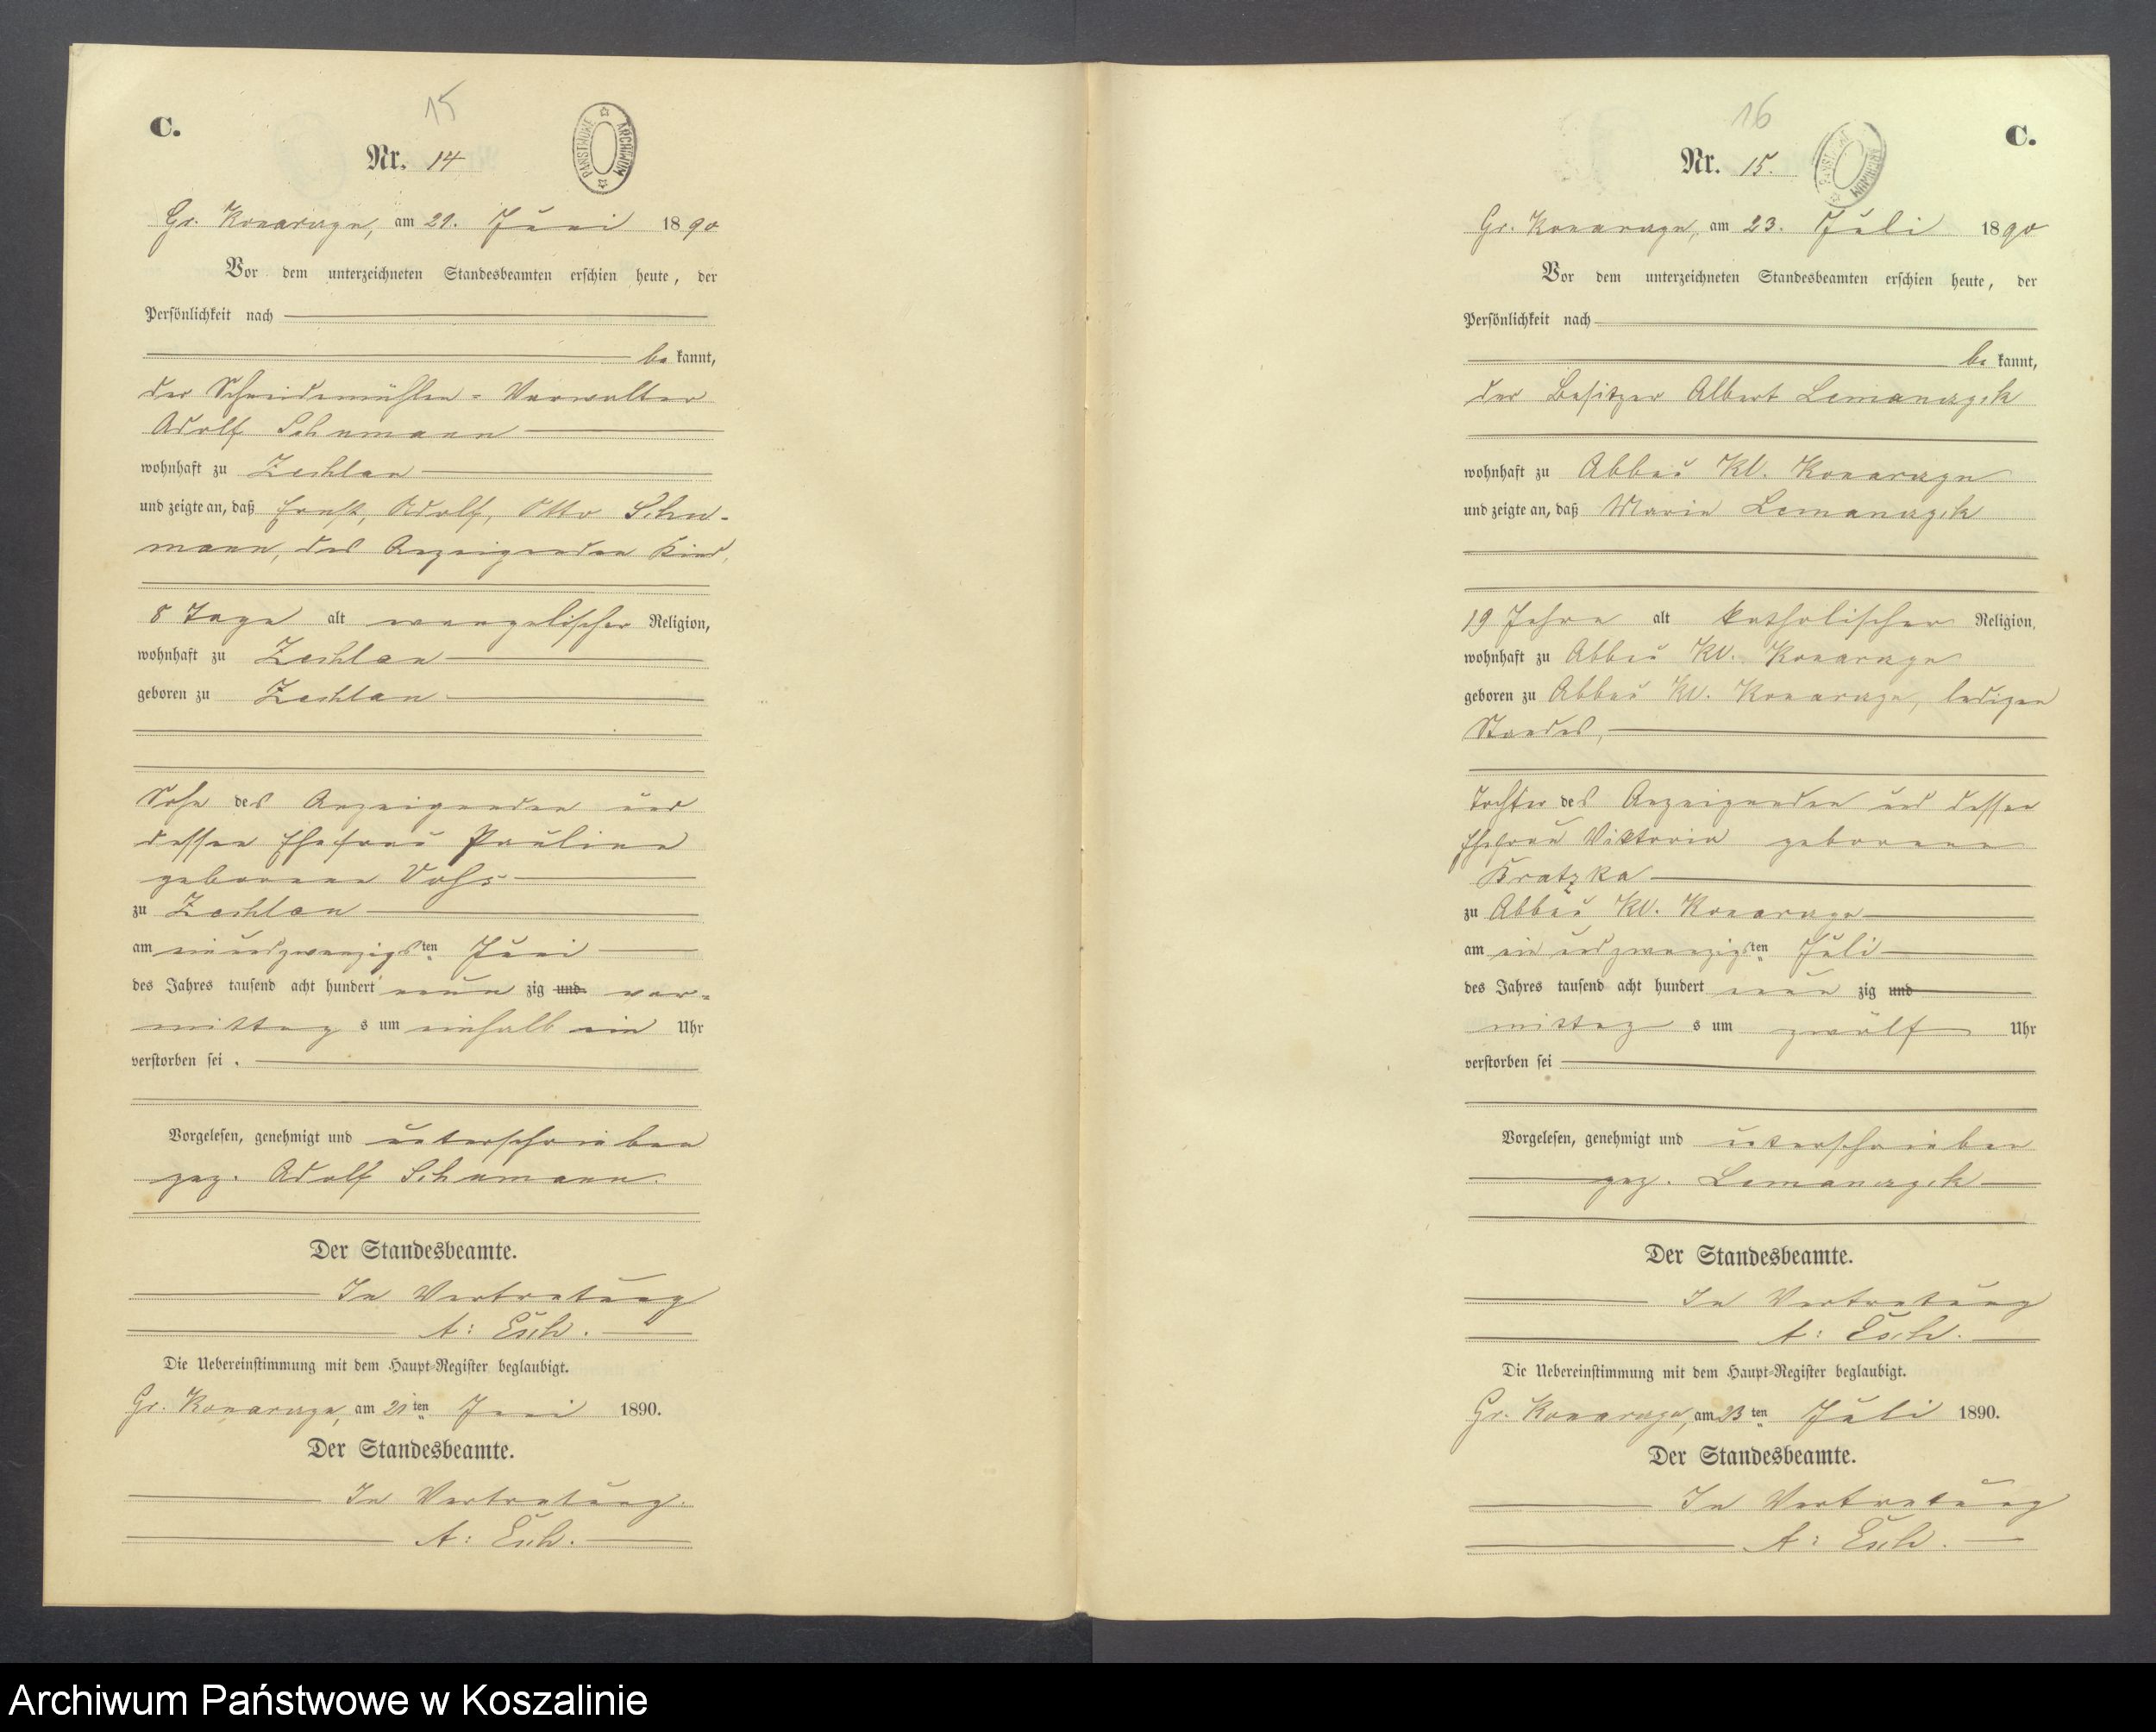 15
C.
Nr. 14
PAŃSTWOWE ARCHIWUM
Gr. Konarczyn, am 21. Juni 1890
Vor dem unterzeichneten Standesbeamten erschien heute, der
Persönlichkeit nach
be kannt,
der Schneidemühlen-Verwalter
Adolf Schumann
wohnhaft zu Zechlau
und zeigte an, daß Ernst, Adolf, Otto Schu-
mann, des Anzeigenden Kind,
8 Tage alt evangelischer Religion,
wohnhaft zu Zechlau
geboren zu Zechlau
Sohn des Anzeigenden und
dessen Ehefrau Pauline
geborenen Voss
zu Zechlau
am einundzwanzigsten Juni
des Jahres tausend acht hundert neun zig und vor-
mittag s um einhalb ein Uhr
verstorben sei.
Vorgelesen, genehmigt und unterschrieben
gez. Adolf Schumann.
Der Standesbeamte.
In Vertretung
A: Esch.
Die Uebereinstimmung mit dem Haupt-Register beglaubigt.
Gr. Konarczyn, am 21ten Juni 1890.
Der Standesbeamte.
In Vertretung.
A: Esch.
16
C.
Nr. 15.
PAŃSTWOWE ARCHIWUM
Gr. Konarczyn, am 23. Juli 1890
Vor dem unterzeichneten Standesbeamten erschien heute, der
Persönlichkeit nach
be kannt,
der Besitzer Albert Lemanczyk
wohnhaft zu Abbau Kl. Konarczyn
und zeigte an, daß Marie Lemanczyk
19 Jahre alt katholischer Religion,
wohnhaft zu Abbau Kl. Konarczyn
geboren zu Abbau Kl. Konarczyn, ledigen
Standes,
Tochter des Anzeigenden und dessen
Ehefrau Viktoria geborenen
Kratzka
zu Abbau Kl. Konarczyn
am ein und zwanzigsten Juli
des Jahres tausend acht hundert neun zig und
mittag s um zwölf Uhr
verstorben sei
Vorgelesen, genehmigt und unterschrieben
gez. Lemanczyk
Der Standesbeamte.
In Vertretung
A: Esch.
Die Uebereinstimmung mit dem Haupt-Register beglaubigt.
Gr. Konarczyn, am 23ten Juli 1890.
Der Standesbeamte.
In Vertretung
A: Esch.
Archiwum Państwowe w Koszalinie